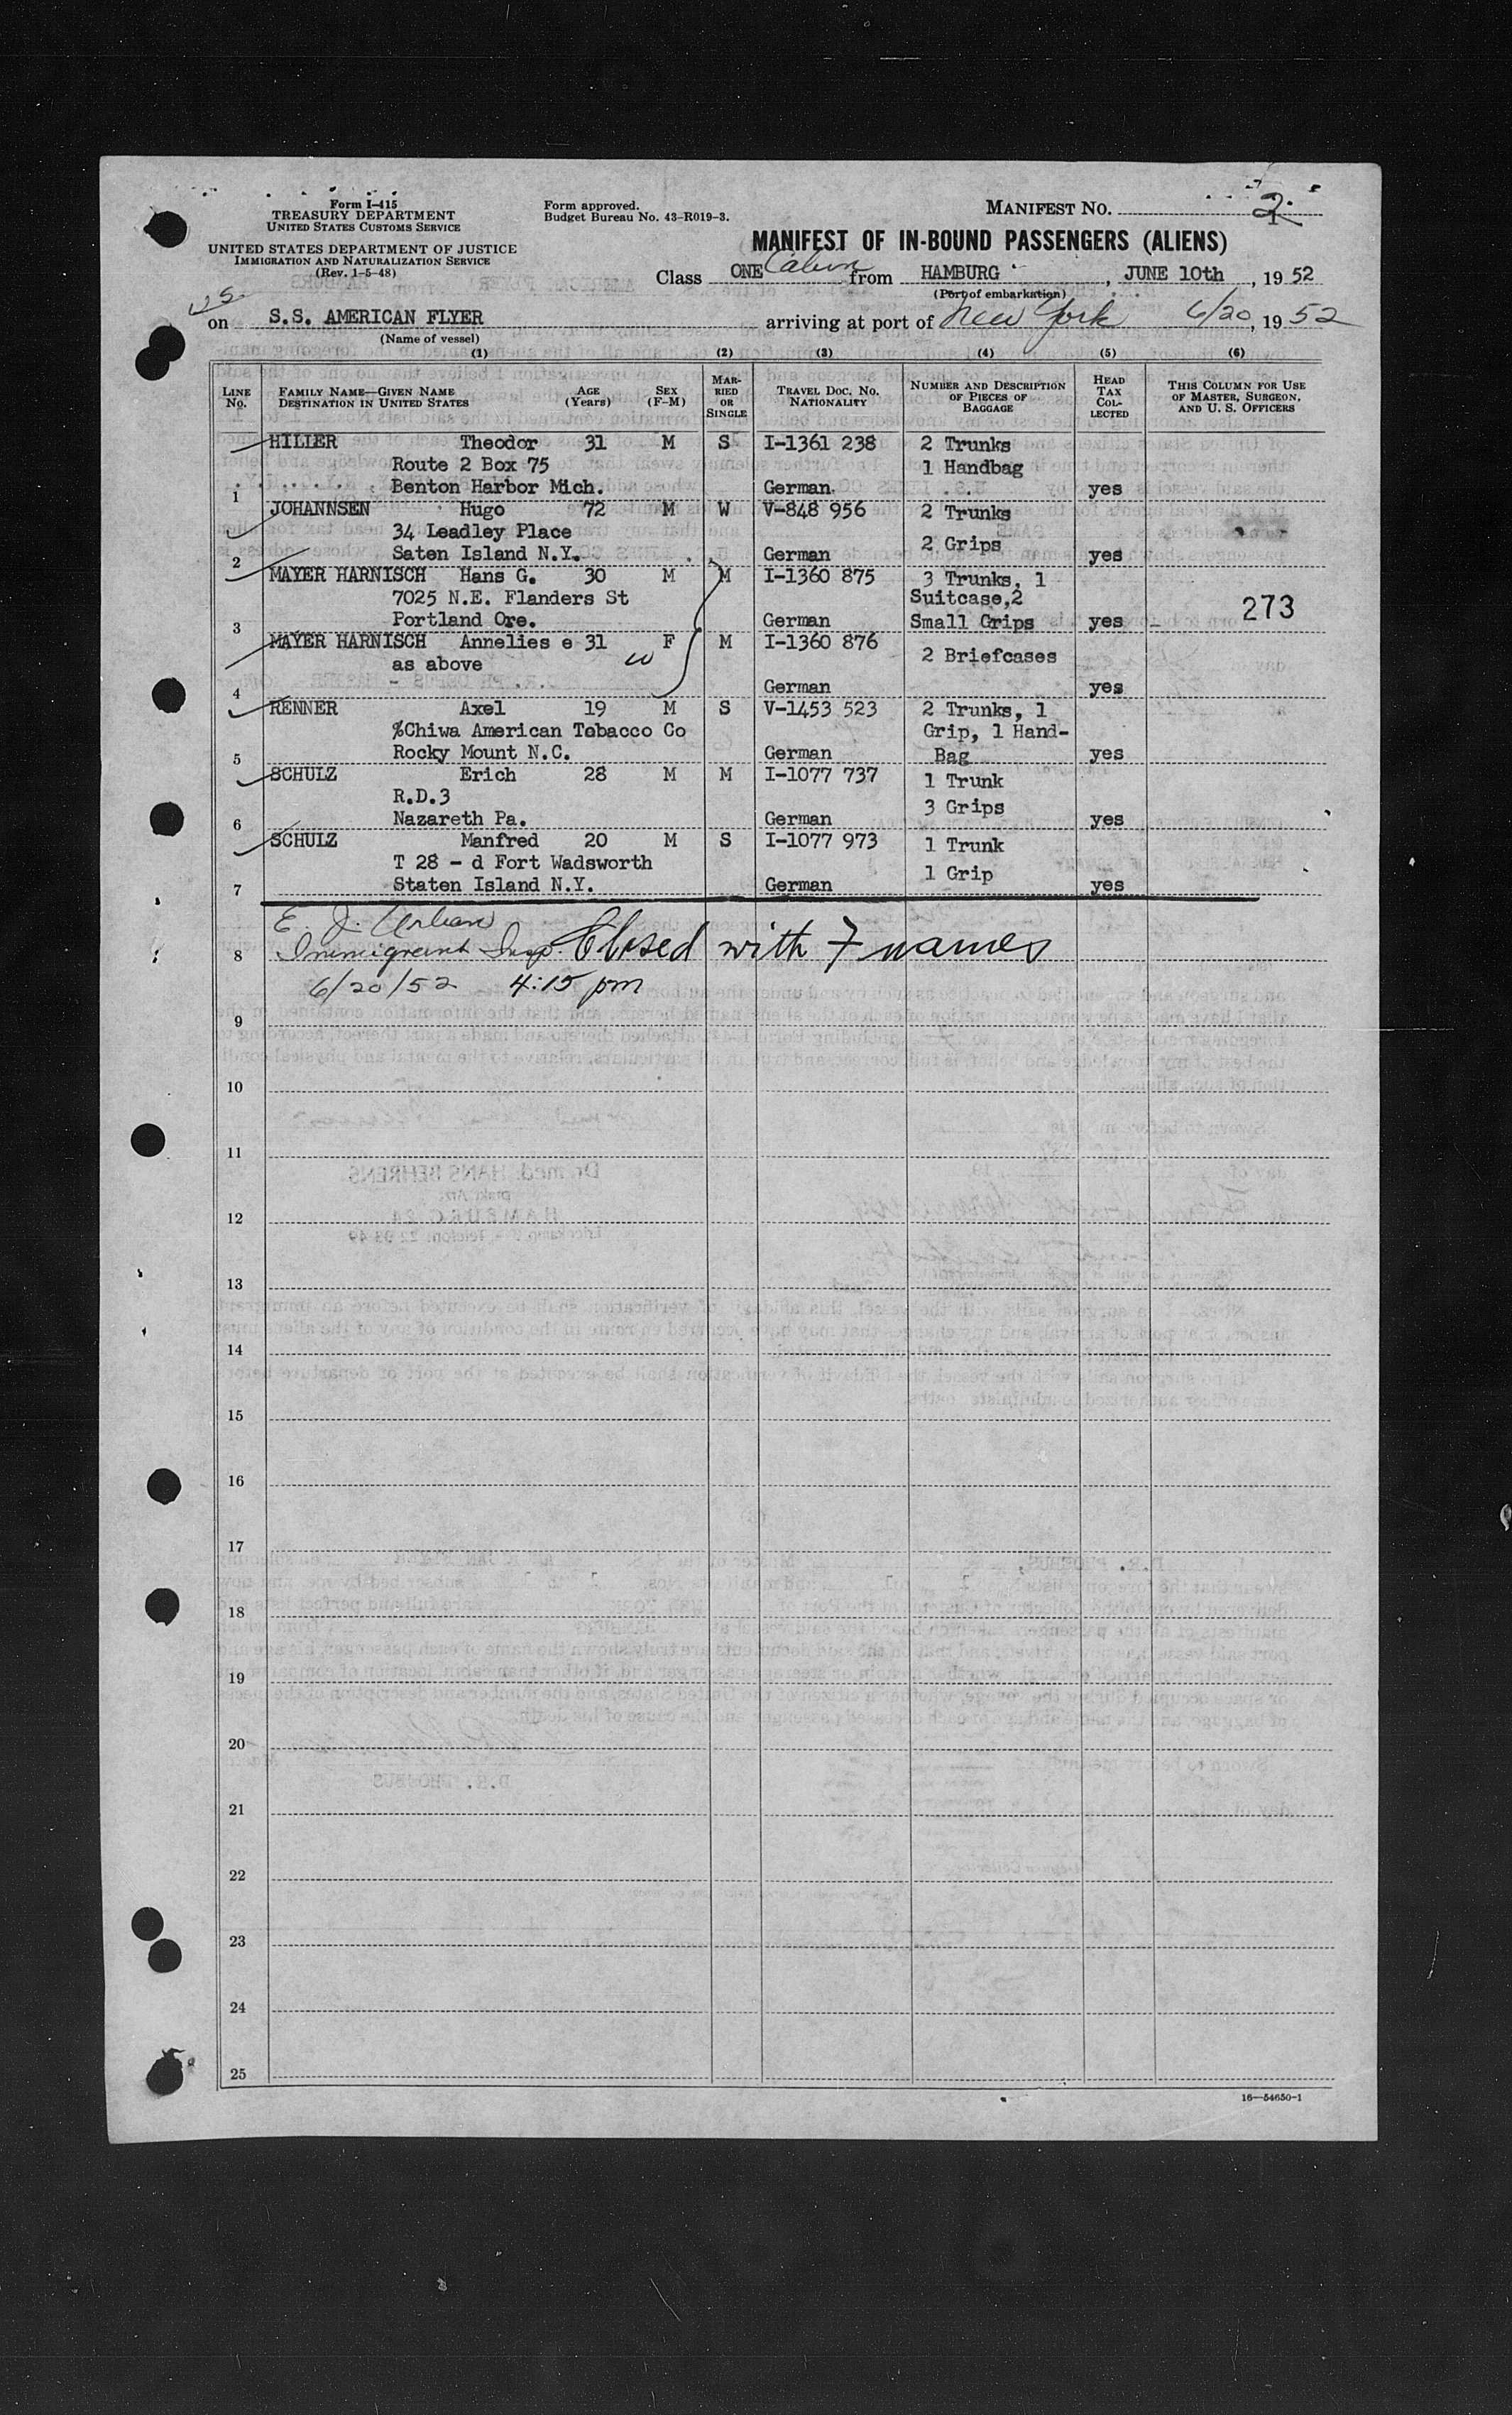 Form I-415
TREASURY DEPARTMENT
UNITED STATES CUSTOMS SERVICE
UNITED STATES DEPARTMENT OF JUSTICE
IMMIGRATION AND NATURALIZATION SERVICE
(Rev. 1-5-48)
Form approved.
Budget Bureau No. 43-R019-3.
MANIFEST NO. 2
MANIFEST OF IN-BOUND PASSENGERS (ALIENS)
Class ONE Cabin from HAMBURG, JUNE 10th, 19 52
(Port of embarkation)
US
on S.S. AMERICAN FLYER arriving at port of New York 6/20, 19 52
(Name of vessel)
(1) (2) (3) (4) (5) (6)
LINE No. FAMILY NAME—GIVEN NAME DESTINATION IN UNITED STATES AGE (Years) SEX (F-M) MARRIED OR SINGLE TRAVEL DOC. NO. NATIONALITY NUMBER AND DESCRIPTION OF PIECES OF BAGGAGE HEAD TAX COLLECTED THIS COLUMN FOR USE OF MASTER, SURGEON, AND U. S. OFFICERS
HILIER Theodor 31 M S I-1361 238 2 Trunks
Route 2 Box 75 1 Handbag
1 Benton Harbor Mich. German yes
JOHANNSEN Hugo 72 M W V-848 956 2 Trunks
34 Leadley Place 2 Grips
2 Saten Island N.Y. German yes
MAYER HARNISCH Hans G. 30 M M I-1360 875 3 Trunks, 1
7025 N.E. Flanders St Suitcase,2
3 Portland Ore. German Small Grips yes 273
MAYER HARNISCH Annelies e 31 F M I-1360 876
as above w 2 Briefcases
4 - German yes
RENNER Axel 19 M S V-1453 523 2 Trunks, 1
%Chiwa American Tobacco Co Grip, 1 Hand-
5 Rocky Mount N.C. German Bag yes
SCHULZ Erich 28 M M I-1077 737 1 Trunk
R.D.3 3 Grips
6 Nazareth Pa. German yes
SCHULZ Manfred 20 M S I-1077 973 1 Trunk
T 28 - d Fort Wadsworth 1 Grip
7 Staten Island N.Y. German yes
E. J. Urban
8 Immigrant Insp. Closed with 7 names
6/20/52 4:15 pm
9
10
11
12
13
14
15
16
17
18
19
20
21
22
23
24
25
16—54650-1